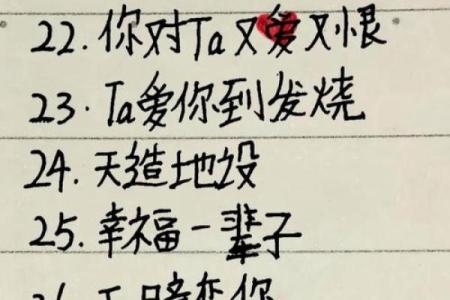 22.你对Ta又爱又恨
23.Ta爱你到发烧
24.天造地设
25.幸福一辈子